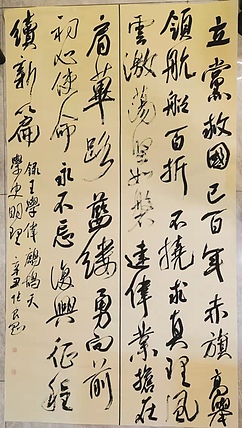 立黨救國已百年赤旗高舉
領航船百折不撓求真理風
雲激蕩堅如磐達偉業擔在
肩蓽路藍缕勇向前
初心使命永不忘復興征程
續新篇
錄王學偉鷓鴣天
學史明理辛丑